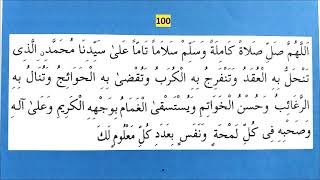 100
اَللّٰهُمَّ صَلِّ صَلَاةً كَامِلَةً وَسَلِّمْ سَلَامًا تَامًّا عَلىٰ سَيِّدِنَا مُحَمَّدِ الَّذِى
تَنْحَلُّ بِهِ الْعُقَدُ وَتَنْفَرِجُ بِهِ الْكُرَبُ وَتُقْضىٰ بِهِ الْحَوَائِجُ وَتُنَالُ بِهِ
الرَّغَائِبُ وَحُسْنُ الْخَوَاتِمِ وَيُسْتَسْقَى الْغَمَامُ بِوَجْهِهِ الْكَرِيمِ وَعَلىٰ آلِهِ
وَصَحْبِهِ فِى كُلِّ لَمْحَةٍ وَنَفَسٍ بِعَدَدِ كُلِّ مَعْلُومٍ لَكَ